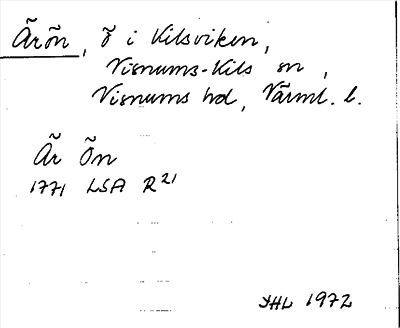 Ärön, ö i Kilsviken,
Visnums-Kils sn,
Visnums hd, Värml. l.
Är Ön
1771 LSA R21
JHL 1972